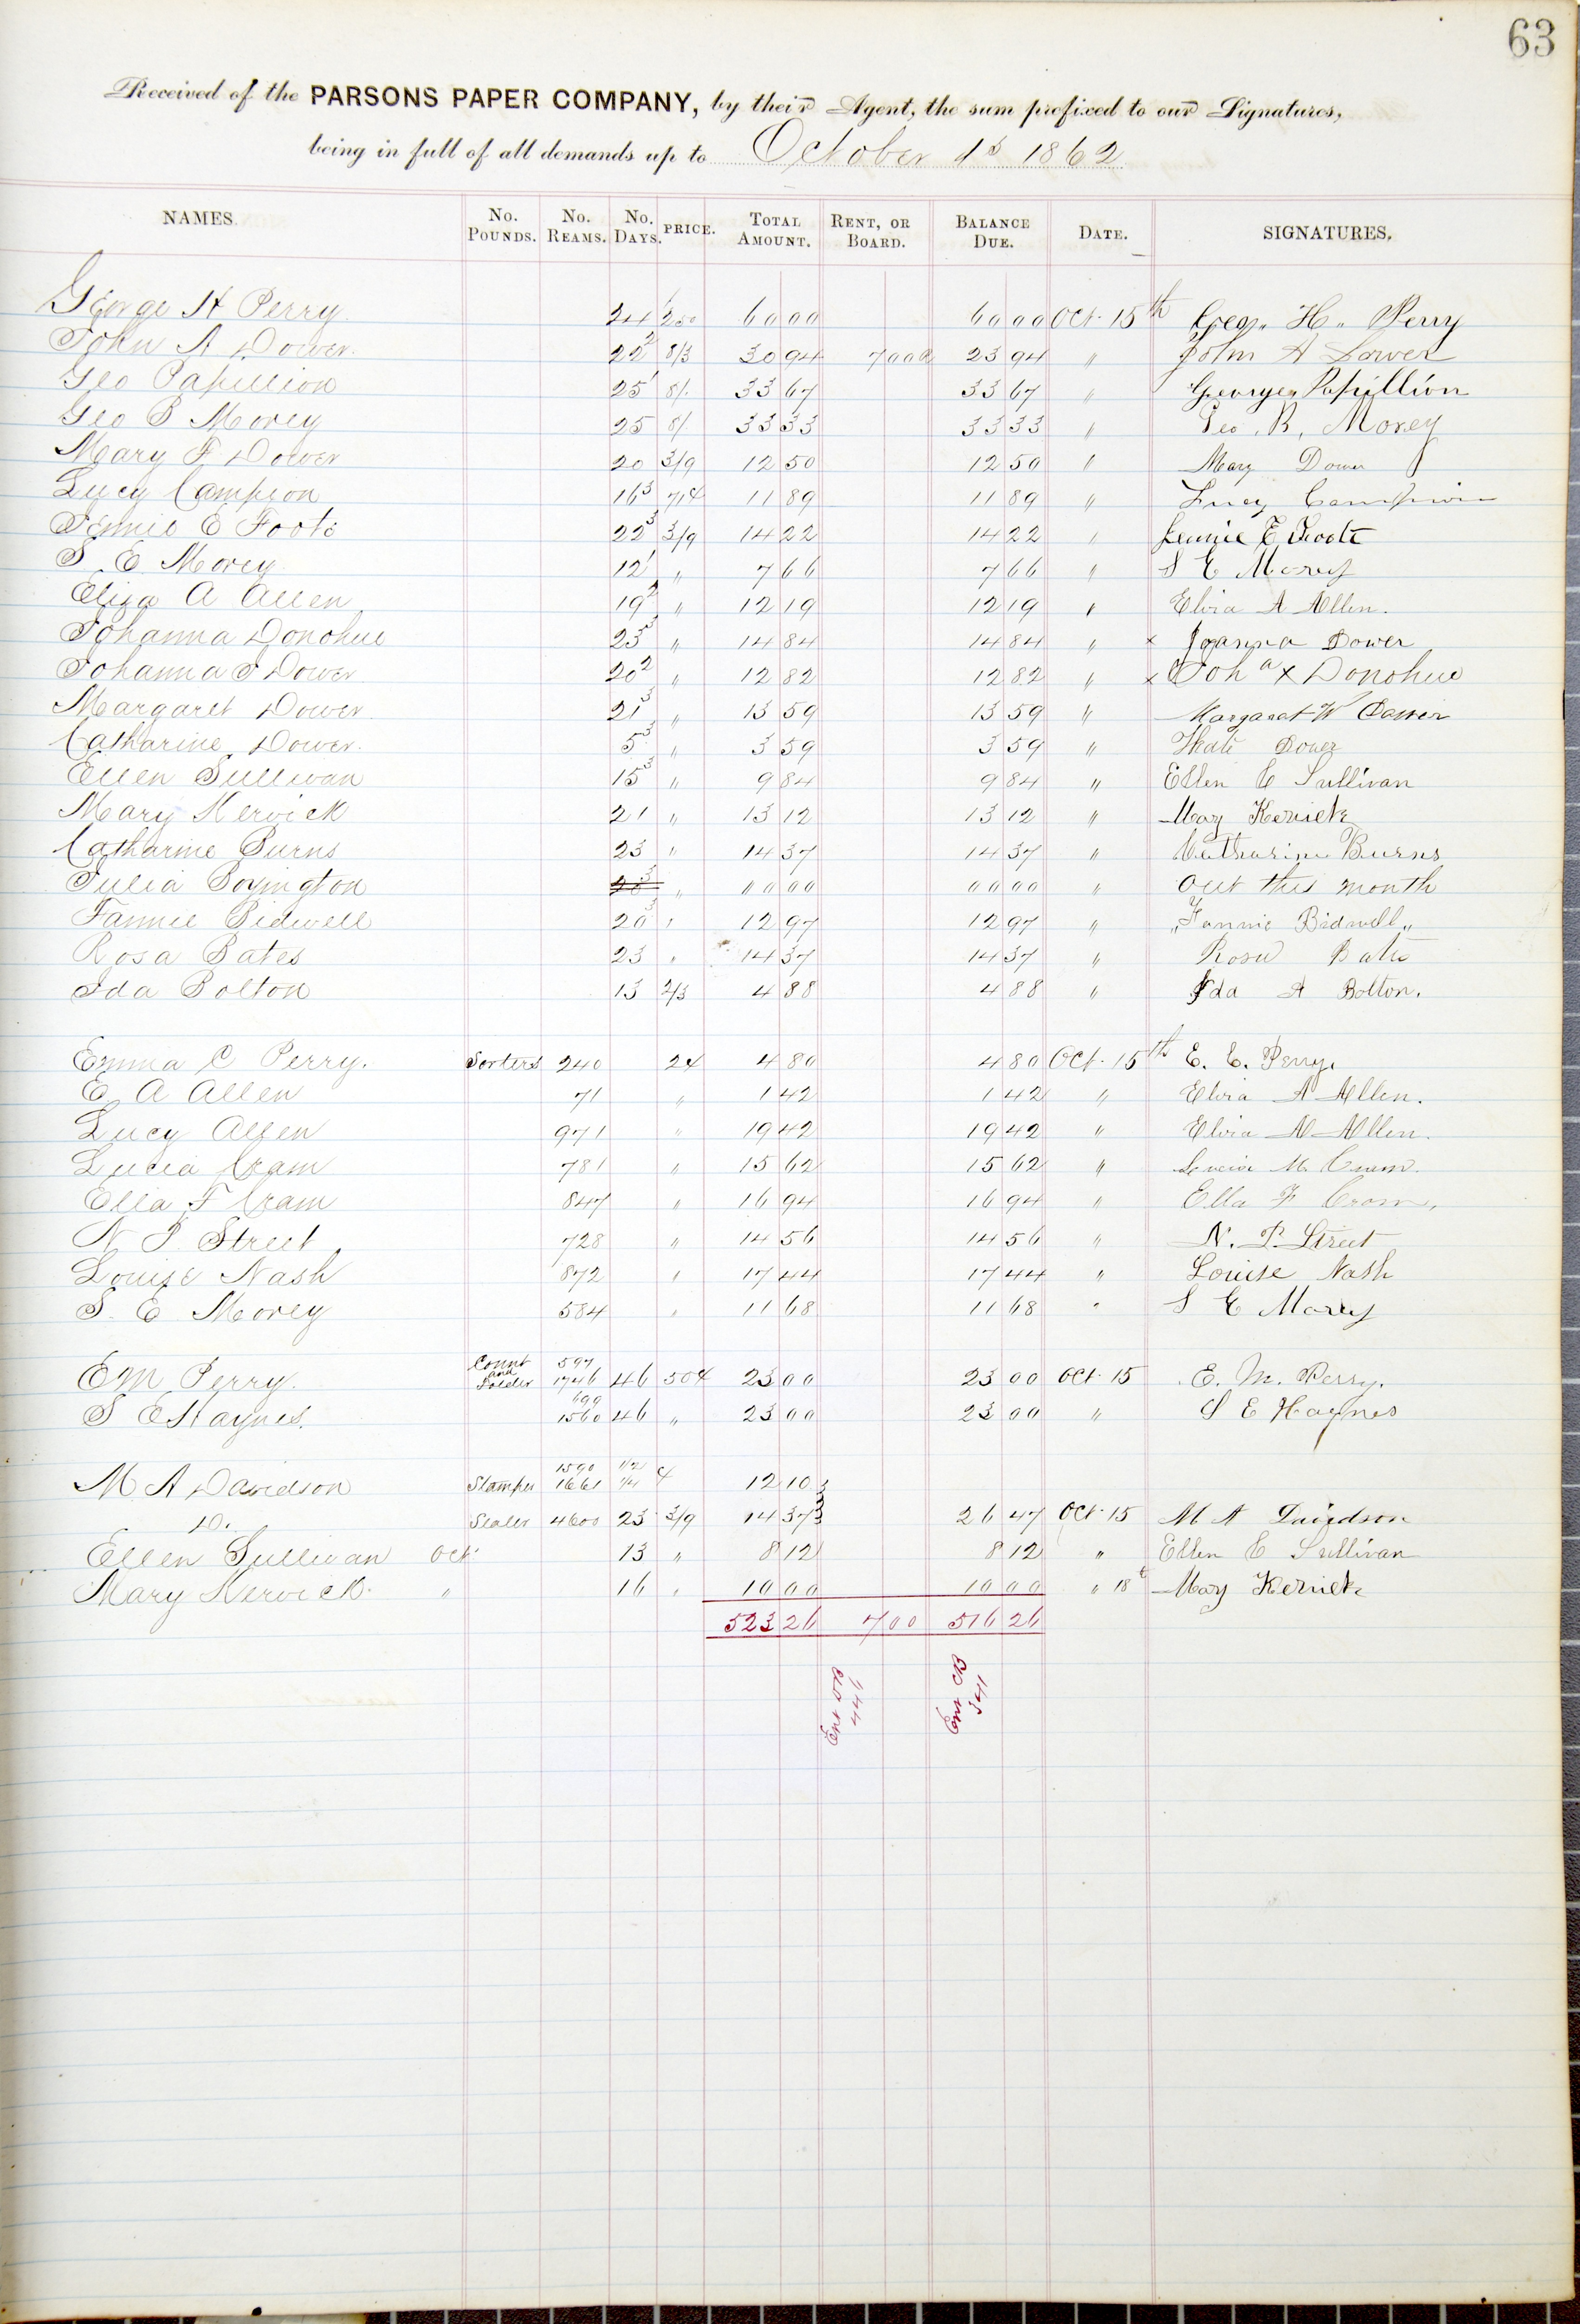 63
Received of the PARSONS PAPER COMPANY, by their Agent, the sum prefixed to our Signatures,
being in full of all demands up to October 1st 1862
NAMES. No. POUNDS. No. REAMS. No. DAYS. PRICE. TOTAL AMOUNT. RENT, OR BOARD. BALANCE DUE. DATE. SIGNATURES.
George H Perry 24 250 60 00 60 00 Oct. 15th Geo. H. Perry
John A Dower. 22 2 8/3 30 94 7 00 23 94 " John A Dower
Geo Papillion 25 1 8/. 33 67 33 67 " George Papillion
Geo B Morey 25 8/. 33 33 33 33 " Geo. B. Morey
Mary F Dower 20 3/9 12 50 12 50 " Mary Dower
Lucy Campion 16 3 71¢ 11 89 11 89 " Lucy Campion
Jennie E Foote 22 3 3/9 14 22 14 22 " Jennie E Foote
S. E. Morey 12 1 " 7 66 7 66 " S E Morey
Eliza A Allen 19 2 " 12 19 12 19 " Elvia A Allen.
Johanna Donohue 23 3 " 14 84 14 84 " x Joanna Dower
Johanna J Dower 20 2 " 12 82 12 82 " x Joh a x Donohue
Margaret Dower 21 3 " 13 59 13 59 " Margaret W Dower
Catharine Dower. 5 3 " 3 59 3 59 " Kate Dower
Ellen Sullivan 15 3 " 9 84 9 84 " Ellen E Sullivan
Mary Kervick 21 " 13 12 13 12 " May Kerick
Catharine Burns 23 " 14 37 14 37 " Catharine Burns
Julia Boyington " " 00 00 00 00 " Out this month
Fannie Bidwell 20 3 " 12 97 12 97 " "Fannie Bidwell"
Rosa Bates 23 " 14 37 14 37 " Rosa Bates
Ida Bolton 13 2/3 4 88 4 88 " Ida A Bolton.
Emma C Perry. Sorters 240 2¢ 4 80 4 80 Oct. 15th E. C. Perry.
E A Allen 71 " 1 42 1 42 " Elvia A Allen.
Lucy Allen 971 " 19 42 19 42 " Elvia A Allen.
Lucia Cram 781 " 15 62 15 62 " M. Cram.
Ella F Cram 847 " 16 94 16 94 " Ella F Cram,
N P Street 728 " 14 56 14 56 " N. P. Street
Louise Nash 872 " 17 44 17 44 " Louise Nash
S. E. Morey 584 " 11 68 11 68 " S E Morey
E M Perry. Count and Folder 597 1746 46 50¢ 23 00 23 00 Oct. 15 E. M. Perry.
S E Haynes. 600 1560 46 " 23 00 23 00 " S E Haynes
M A Davidson Stamper 1590 1/2 1661 1/4 ¢ 12 10
Do. Sealer 4600 23 3/9 14 37 26 47 Oct. 15 M A Davidson
Ellen Sullivan Oct. 13 " 8 12 8 12 " Ellen E Sullivan
Mary Kervick. " 16 " 10 00 10 00 " 18t May Kerick
523 26 7 00 516 26
Ent DB 446
Ent CB 341